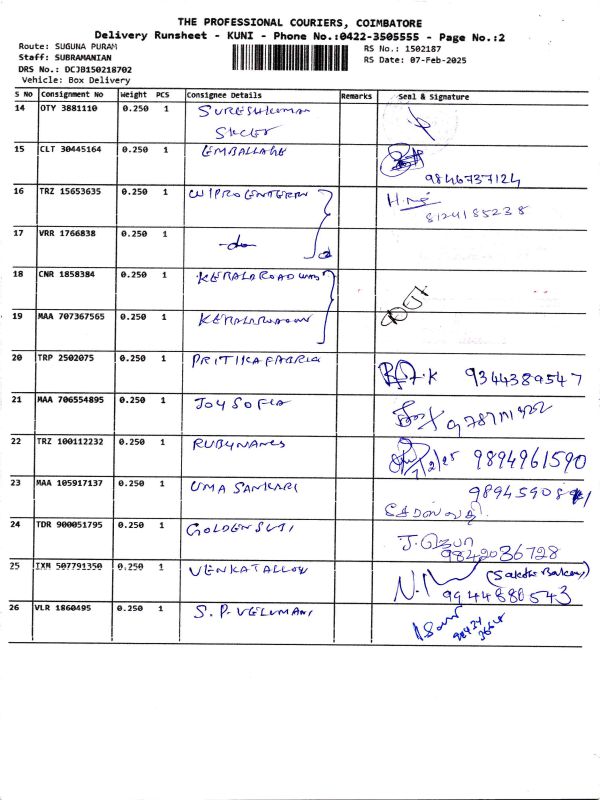 THE PROFESSIONAL COURIERS, COIMBATORE
Delivery Runsheet - KUNI - Phone No.:0422-3505555 - Page No.:2
Route: SUGUNA PURAM
RS No.: 1502187
Staff: SUBRAMANIAN
RS Date: 07-Feb-2025
DRS No.: DCJB150218702
Vehicle: Box Delivery
S No Consignment No Weight PCS Consignee Details Remarks Seal & Signature
14 OTY 3881110 0.250 1 SURESHKUMAR
SKCET
15 CLT 30445164 0.250 1 EMBALLAGE
9846737124
16 TRZ 15653635 0.250 1 WIPRO ENTERN
8124185238
17 VRR 1766838 0.250 1 -do-
18 CNR 1858384 0.250 1 KERALA ROADWAYS
19 MAA 707367565 0.250 1
20 TRP 2502075 0.250 1 PRITIKA FABRIC
9344389547
21 MAA 706554895 0.250 1 JOY SOFIA
22 TRZ 100112232 0.250 1 RUBYNANCS
7/2/25 9894961590
23 MAA 105917137 0.250 1 UMA SANKARI
24 TDR 900051795 0.250 1
9842036728
25 IXM 507791350 0.250 1 VENKATALLOY
(Sakthi Bakery)
9944880543
26 VLR 1860495 0.250 1 S.P. VELUMANI